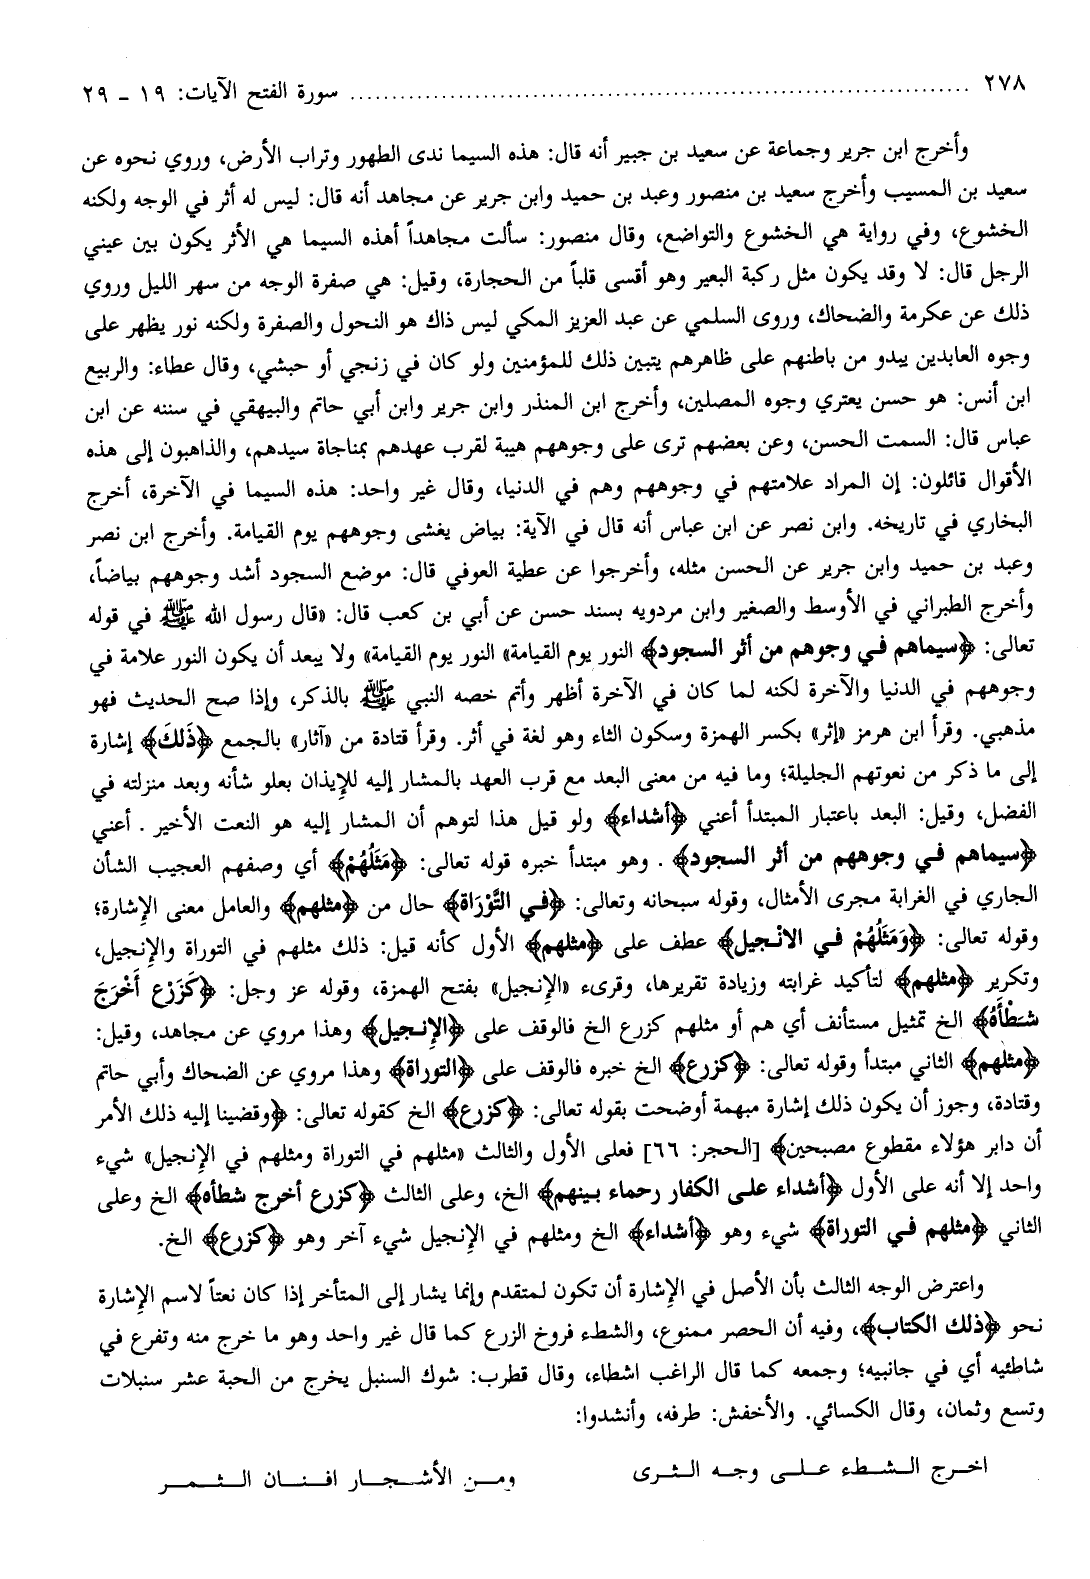 ٢٧٨ ........................................................................ سورة الفتح الآيات: ١٩ - ٢٩
وأخرج ابن جرير وجماعة عن سعيد بن جبير أنه قال: هذه السيما ندى الطهور وتراب الأرض، وروي نحوه عن
سعيد بن المسيب وأخرج سعيد بن منصور وعبد بن حميد وابن جرير عن مجاهد أنه قال: ليس له أثر في الوجه ولكنه
الخشوع، وفي رواية هي الخشوع والتواضع، وقال منصور: سألت مجاهداً أهذه السيما هي الأثر يكون بين عيني
الرجل قال: لا وقد يكون مثل ركبة البعير وهو أقسى قلباً من الحجارة، وقيل: هي صفرة الوجه من سهر الليل وروي
ذلك عن عكرمة والضحاك، وروى السلمي عن عبد العزيز المكي ليس ذاك هو النحول والصفرة ولكنه نور يظهر على
وجوه العابدين يبدو من باطنهم على ظاهرهم يتبين ذلك للمؤمنين ولو كان في زنجي أو حبشي، وقال عطاء: والربيع
ابن أنس: هو حسن يعتري وجوه المصلين، وأخرج ابن المنذر وابن جرير وابن أبي حاتم والبيهقي في سننه عن ابن
عباس قال: السمت الحسن، وعن بعضهم ترى على وجوههم هيبة لقرب عهدهم بمناجاة سيدهم، والذاهبون إلى هذه
الأقوال قائلون: إن المراد علامتهم في وجوههم وهم في الدنيا، وقال غير واحد: هذه السيما في الآخرة، أخرج
البخاري في تاريخه. وابن نصر عن ابن عباس أنه قال في الآية: بياض يغشى وجوههم يوم القيامة. وأخرج ابن نصر
وعبد بن حميد وابن جرير عن الحسن مثله، وأخرجوا عن عطية العوفي قال: موضع السجود أشد وجوههم بياضاً،
وأخرج الطبراني في الأوسط والصغير وابن مردويه بسند حسن عن أبي بن كعب قال: «قال رسول الله ﷺ في قوله
تعالى: ﴿سيماهم في وجوهم من أثر السجود﴾ النور يوم القيامة» النور يوم القيامة» ولا يبعد أن يكون النور علامة في
وجوههم في الدنيا والآخرة لكنه لما كان في الآخرة أظهر وأتم خصه النبي ﷺ بالذكر، وإذا صح الحديث فهو
مذهبي. وقرأ ابن هرمز «إثر» بكسر الهمزة وسكون الثاء وهو لغة في أثر. وقرأ قتادة من «آثار» بالجمع ﴿ذَلكَ﴾ إشارة
إلى ما ذكر من نعوتهم الجليلة؛ وما فيه من معنى البعد مع قرب العهد بالمشار إليه للإيذان بعلو شأنه وبعد منزلته في
الفضل، وقيل: البعد باعتبار المبتدأ أعني ﴿أشداء﴾ ولو قيل هذا لتوهم أن المشار إليه هو النعت الأخير . أعني
﴿سيماهم في وجوههم من أثر السجود﴾ . وهو مبتدأ خبره قوله تعالى: ﴿مَثَلُهُمْ﴾ أي وصفهم العجيب الشأن
الجاري في الغرابة مجرى الأمثال، وقوله سبحانه وتعالى: ﴿في التَّوْرَاة﴾ حال من ﴿مثلهم﴾ والعامل معنى الإشارة؛
وقوله تعالى: ﴿وَمَثَلُهُمْ في الانْجيل﴾ عطف على ﴿مثلهم﴾ الأول كأنه قيل: ذلك مثلهم في التوراة والإنجيل،
وتكرير ﴿مثلهم﴾ لتأكيد غرابته وزيادة تقريرها، وقرىء «الإنجيل» بفتح الهمزة، وقوله عز وجل: ﴿كَزَرْع أَخْرَجَ
شَطْأَهُ﴾ الخ تمثيل مستأنف أي هم أو مثلهم كزرع الخ فالوقف على ﴿الإنجيل﴾ وهذا مروي عن مجاهد، وقيل:
﴿مثلهم﴾ الثاني مبتدأ وقوله تعالى: ﴿كزرع﴾ الخ خبره فالوقف على ﴿التوراة﴾ وهذا مروي عن الضحاك وأبي حاتم
وقتادة، وجوز أن يكون ذلك إشارة مبهمة أوضحت بقوله تعالى: ﴿كزرع﴾ الخ كقوله تعالى: ﴿وقضينا إليه ذلك الأمر
أن دابر هؤلاء مقطوع مصبحين﴾ [الحجر: ٦٦] فعلى الأول والثالث «مثلهم في التوراة ومثلهم في الإنجيل» شيء
واحد إلا أنه على الأول ﴿أشداء على الكفار رحماء بينهم﴾ الخ، وعلى الثالث ﴿كزرع أخرج شطأه﴾ الخ وعلى
الثاني ﴿مثلهم في التوراة﴾ شيء وهو ﴿أشداء﴾ الخ ومثلهم في الإنجيل شيء آخر وهو ﴿كزرع﴾ الخ.
واعترض الوجه الثالث بأن الأصل في الإشارة أن تكون لمتقدم وإنما يشار إلى المتأخر إذا كان نعتاً لاسم الإشارة
نحو ﴿ذلك الكتاب﴾، وفيه أن الحصر ممنوع، والشطء فروخ الزرع كما قال غير واحد وهو ما خرج منه وتفرع في
شاطئيه أي في جانبيه؛ وجمعه كما قال الراغب اشطاء، وقال قطرب: شوك السنبل يخرج من الحبة عشر سنبلات
وتسع وثمان، وقال الكسائي. والأخفش: طرفه، وأنشدوا:
اخرج الشطء على وجه الثرى ومن الأشجار افنان الثمر